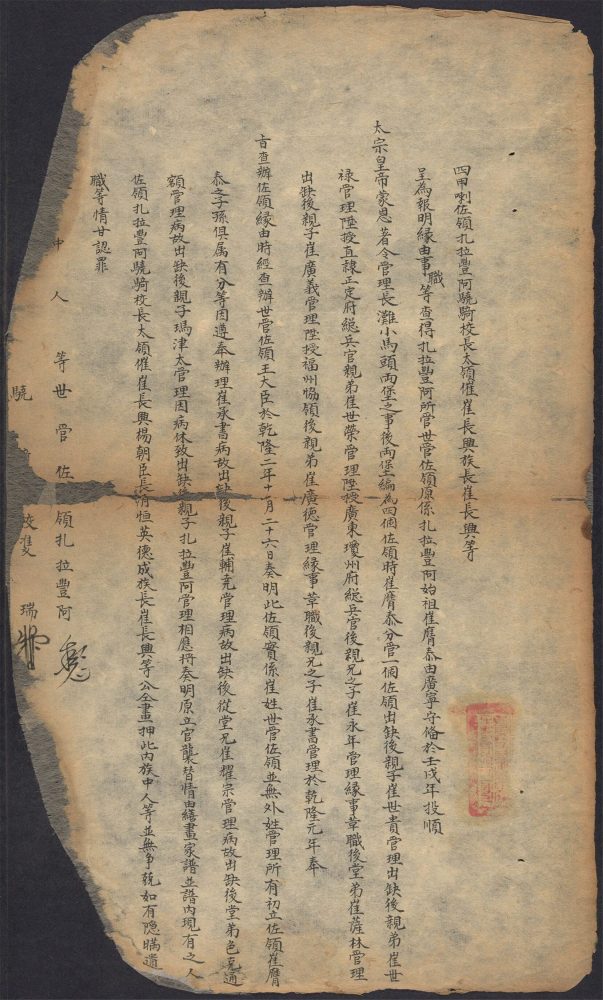 四甲喇佐領扎拉豐阿驍騎校長太領催崔長興族長崔長興等
呈為報明緣由事職等查得扎拉豐阿所管世管佐領原係扎拉豐阿始祖崔膺泰由廣寧守備於壬戌年投順
太宗皇帝蒙恩著令管理長灘小馬頭兩堡之事後兩堡編為四個佐領時崔膺泰分管一個佐領出缺後親子崔世貴管理出缺後親弟崔世
祿管理陞授直隸正定府總兵官親弟崔世榮管理陞授廣東瓊州府總兵官後親兄之子崔永年管理緣事革職後堂弟崔薩林管理
出缺後親子崔廣義管理陞授福州協領後親弟崔廣德管理緣事革職後親兄之子崔承書管理於乾隆元年奉
旨查辦佐領緣由時經查辦世管佐領王大臣於乾隆二年十一月二十六日奏明此佐領實係崔姓世管佐領並無外姓管理所有初立佐領崔膺
泰之子孫俱屬有分等因遵奉辦理崔承書病故出缺後親子崔輔克管理病故出缺後從堂兄崔耀宗管理病故出缺後堂弟色克通
額管理病故出缺後親子瑪津太管理因病休致出缺後親子扎拉豐阿管理相應將奏明原立官襲替情由繕畫家譜並譜內現有之人
佐領扎拉豐阿驍騎校長太領催崔長興楊朝臣長清恒英德成族長崔長興等公仝畫押此內族中人等並無爭競如有隱瞞遺
職等情甘認罪
中人等世管佐領扎拉豐阿
驍 校雙瑞